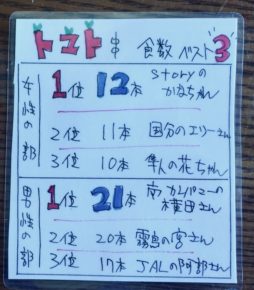 トマト串 食数 ベスト3
女性の部
1位 12本 storyのかなちゃん
2位 11本 国分のエリーさん
3位 10本 隼人の花ちゃん
男性の部
1位 21本 南カンパニーの権田さん
2位 20本 霧島の宮さん
3位 17本 JALの阿部さん